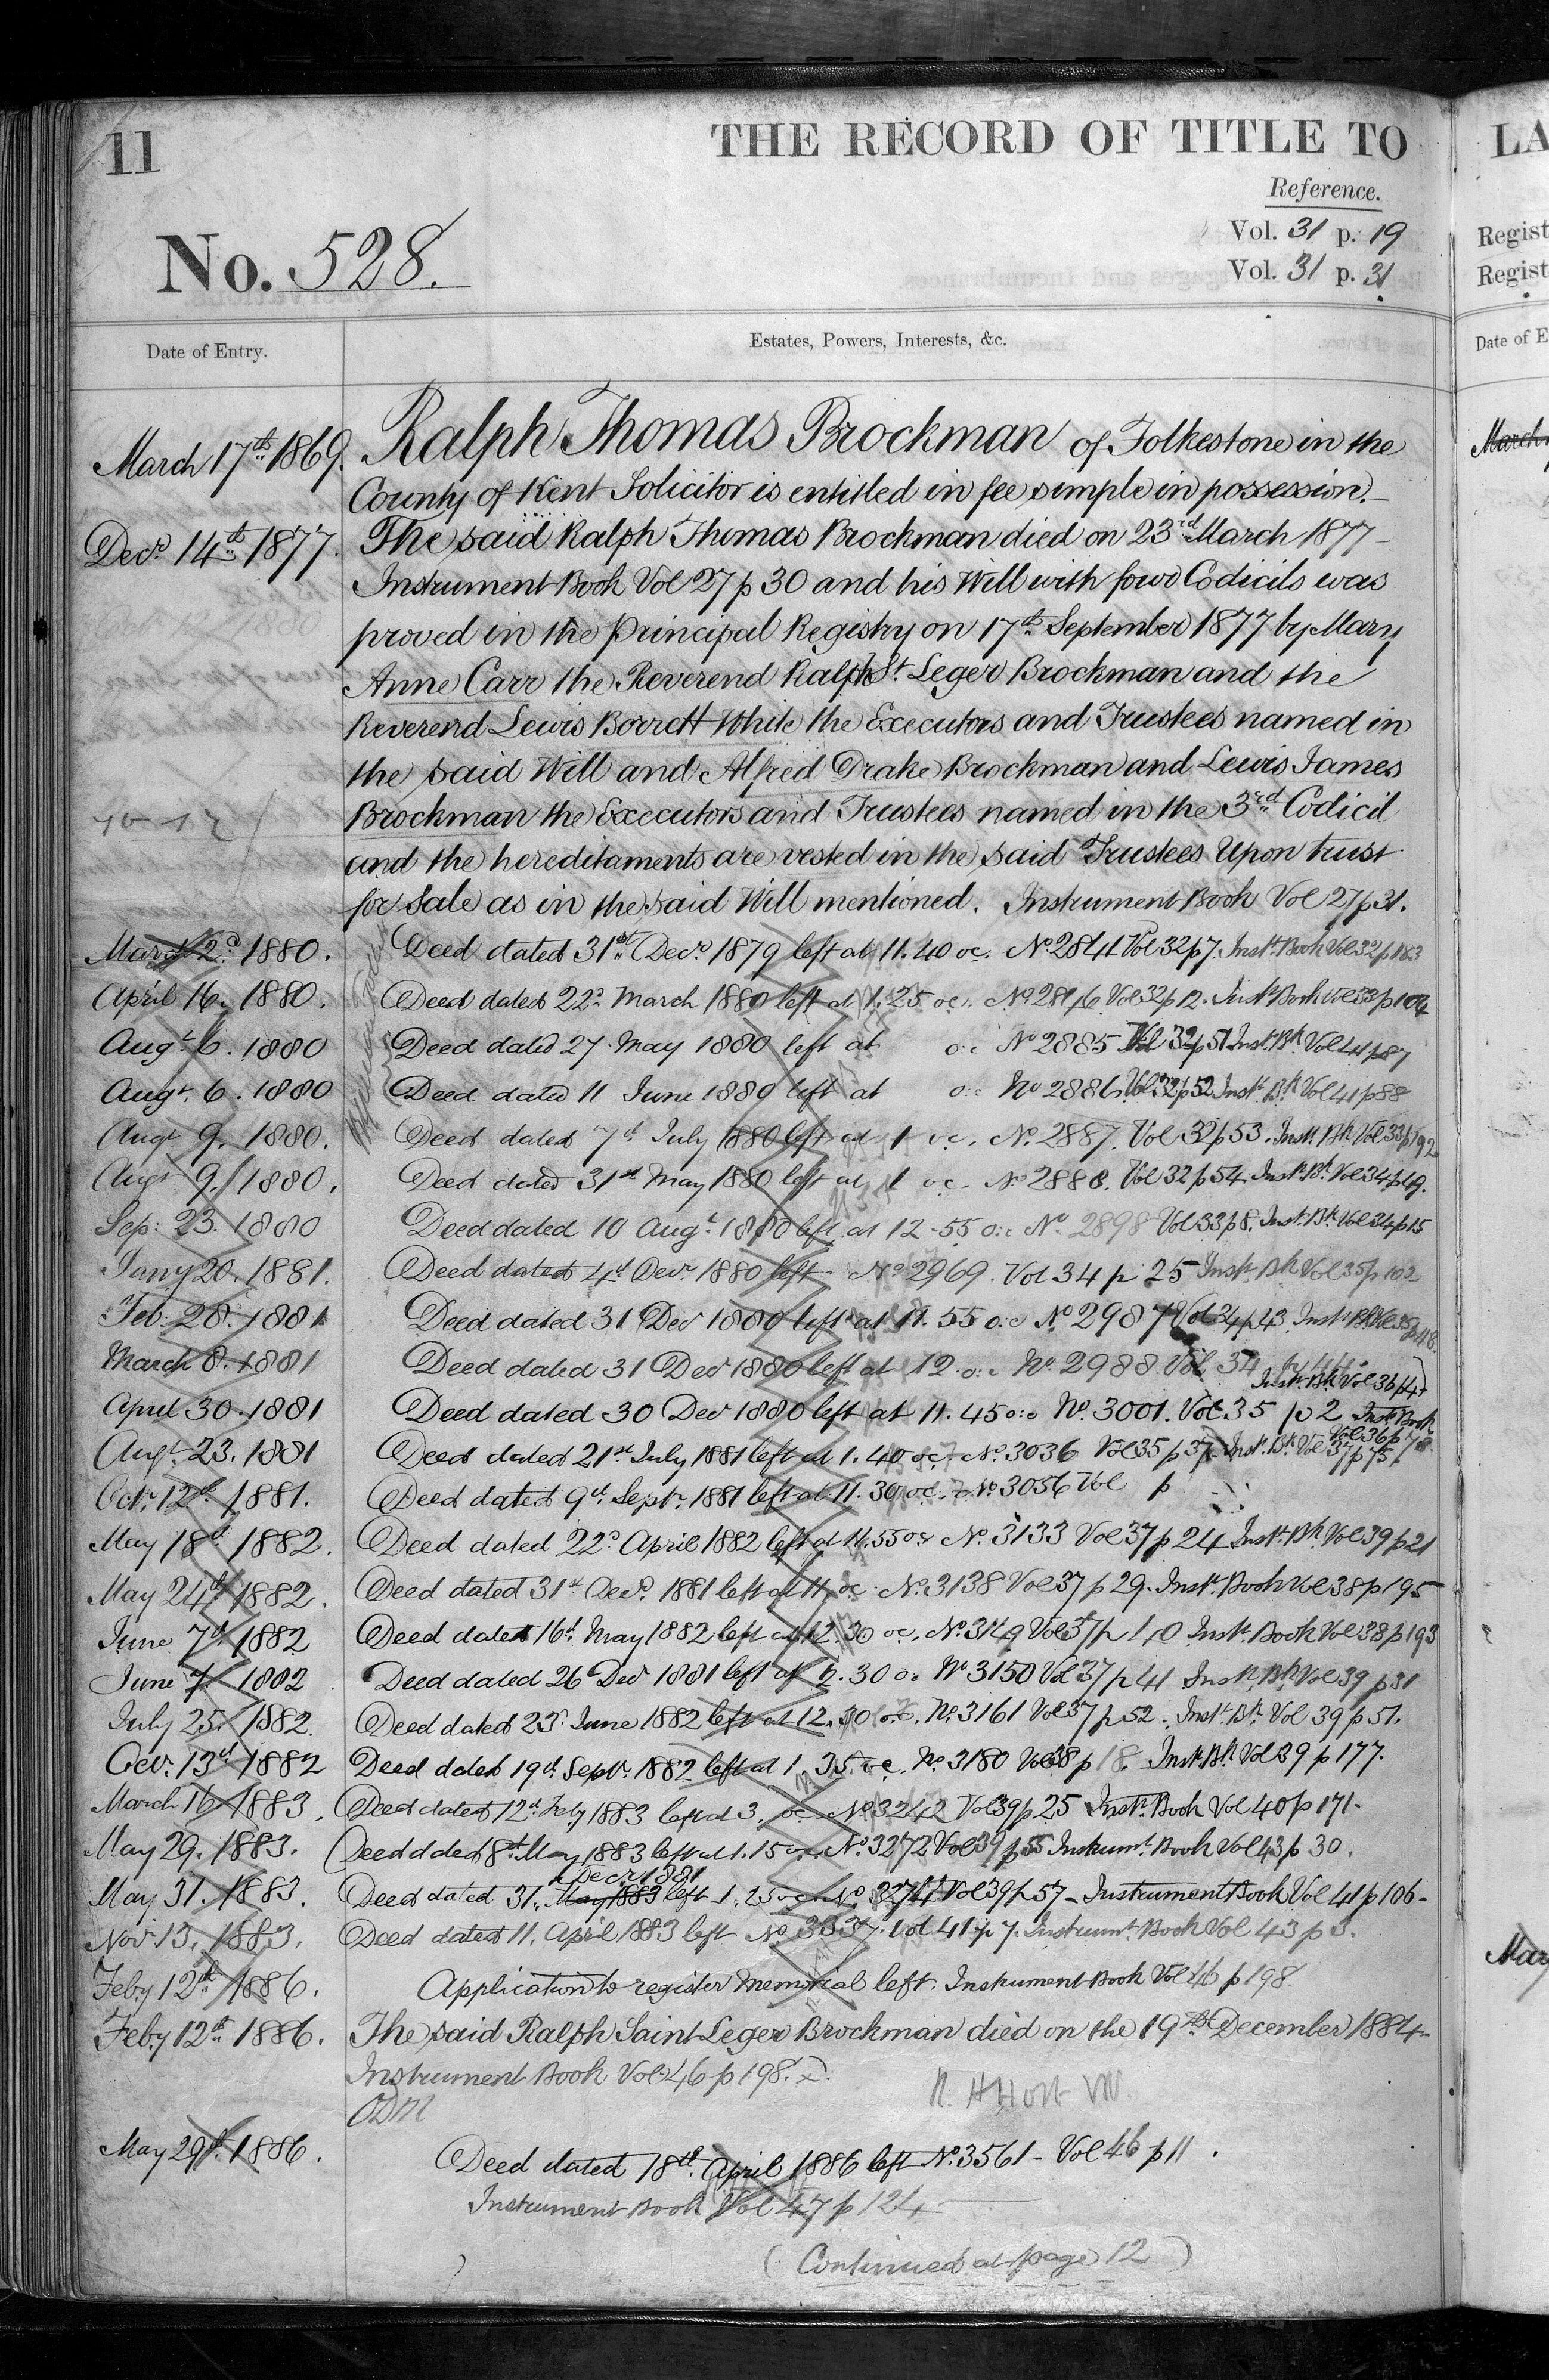 11
THE RECORD OF TITLE TO
Reference.
No. 528.
Vol. 31 p. 19
Vol. 31 p. 31
Date of Entry.
Estates, Powers, Interests, &c.
March 17th 1869. Ralph Thomas Brockman of Folkestone in the
County of Kent Solicitor is entitled in fee simple in possession.
Decr 14th 1877. The said Ralph Thomas Brockman died on 23rd March 1877
Instrument Book Vol 27 p 30 and his Will with four Codicils was
proved in the Principal Registry on 17th September 1877 by Mary
Anne Carr the Reverend Ralph St Leger Brockman and the
Reverend Lewis Borrett White the Executors and Trustees named in
the said Will and Alfred Drake Brockman and Lewis James
Brockman the Executors and Trustees named in the 3rd Codicil
and the hereditaments are vested in the said Trustees Upon trust
for Sale as in the said Will mentioned. Instrument Book Vol 27 p 31.
March 2d 1880. Deed dated 31st Decr 1879 left at 11.40 oc. No 2841 Vol 32 p 7. Inst. Book Vol 32 p 183
April 16. 1880. Deed dated 22d March 1880 left at 1.25 oc. No 2816 Vol 32 p 12. Inst. Book Vol 33 p 104
Augt 6. 1880 Deed dated 27 May 1880 left at o:c No 2885 Vol 32 p 51 Inst. Bk Vol 41 p 87
Augt 6. 1880 Deed dated 11 June 1880 left at o:c No 2886 Vol 32 p 52 Inst. Bk Vol 41 p 88
Augt 9. 1880. Deed dated 7th July 1880 left at 1 oc. No 2887. Vol 32 p 53. Inst. Bk Vol 33 p 192
Augt 9. 1880. Deed dated 31st May 1880 left at 1 oc. No 2888. Vol 32 p 54. Inst. Bk. Vol 34 p 49.
Sep: 23. 1880 Deed dated 10 Augt 1880 left at 12-55 o:c No 2898 Vol 33 p 8. Inst. Bk Vol 34 p 15
Jany 20. 1881. Deed dated 4th Decr 1880 left - No 2969. Vol 34 p 25 Inst. Bk Vol 35 p 102
Feb: 28. 1881 Deed dated 31 Decr 1880 left at 11.55 o:c No 2987 Vol 34 p 43. Inst. Bk Vol 35 p 118.
March 8. 1881 Deed dated 31 Decr 1880 left at 12 o:c No 2988 Vol. 34 p 44
Inst. Bk Vol 36 p 47
April 30. 1881 Deed dated 30 Decr 1880 left at 11.45 o:c No. 3001. Vol. 35 p 2 Inst. Book
Vol 36 p 78
Augt 23. 1881 Deed dated 21st July 1881 left at 1.40 oc. No. 3036 Vol 35 p 37. Inst. Bk Vol 37 p 75
Octr 12th 1881. Deed dated 9th Septr 1881 left at 11.30 oc. No 3056 Vol p
May 18th 1882. Deed dated 22d April 1882 left at 11.55 oc No. 3133 Vol 37 p 24 Inst. Bk Vol 39 p 21
May 24th 1882. Deed dated 31st Decr 1881 left at 11 oc. No. 3138 Vol 37 p 29. Inst. Book Vol 38 p 195
June 7th 1882 Deed dated 16th May 1882 left at 12.30 oc. No. 3149 Vol 37 p 40 Inst. Book Vol 38 p 193
June 7. 1882 Deed dated 26 Decr 1881 left at 12.30 o: No 3150 Vol 37 p 41 Inst. Bk. Vol 39 p 31
July 25. 1882. Deed dated 23 June 1882 left at 12.30 o:c. No. 3161 Vol 37 p 52. Inst. Bk. Vol 39 p 51.
Octr. 13th 1882 Deed dated 19th Septr. 1882 left at 1.35 oc. No. 3180 Vol 38 p 18. Inst. Bk Vol 39 p 177.
March 16. 1883. Deed dated 12th Feby 1883 left at 3. oc No 3242 Vol 39 p 25 Inst. Book Vol 40 p 171-
May 29. 1883. Deed dated 8th May 1883 left at 1.15 oc. No. 3272 Vol 39 p 55 Instrumt Book Vol 43 p 30.
Decr 1881
May 31. 1883. Deed dated 31. May 1883 left 1.25 oc No. 3274 Vol 39 p 57 - Instrument Book Vol 41 p 106-
Novr 13. 1883. Deed dated 11. April 1883 left No. 3337. Vol. 41 p 7. Instrumt Book Vol 43 p 3.
Feby 12th 1886. Application to register Memorial left. Instrument Book Vol 46 p 198.
Feby 12th 1886. The said Ralph Saint Leger Brockman died on the 19th December 1884
Instrument Book Vol 46 p 198.
May 29th 1886. Deed dated 18th April 1886 left No. 3561 - Vol 46 p 11.
Instrument Book Vol 47 p 124
(Continued at page 12)
LA
Regist
Regist
Date of E
March
May